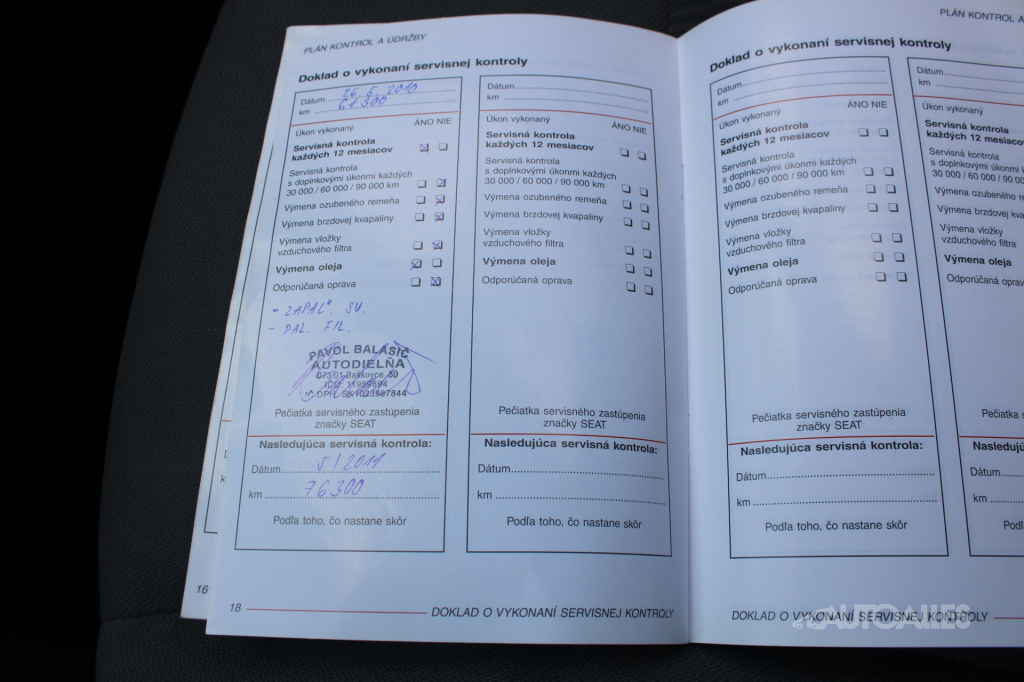 PLÁN KONTROL A ÚDRŽBY
Doklad o vykonaní servisnej kontroly
Dátum 26.5.2010
km 61 300
Úkon vykonaný ÁNO NIE
Servisná kontrola
každých 12 mesiacov
Servisná kontrola
s doplnkovými úkonmi každých
30 000 / 60 000 / 90 000 km
Výmena ozubeného remeňa
Výmena brzdovej kvapaliny
Výmena vložky
vzduchového filtra
Výmena oleja
Odporúčaná oprava
- ZAPAL. SV.
- PAL. FIL.
PAVOL BALASIČ
AUTODIELŇA
073 01 Baškovce, 80
Pečiatka servisného zastúpenia
značky SEAT
Nasledujúca servisná kontrola:
Dátum 5/2011
km 76 300
Podľa toho, čo nastane skôr
Dátum
km
Úkon vykonaný ÁNO NIE
Servisná kontrola
každých 12 mesiacov
Servisná kontrola
s doplnkovými úkonmi každých
30 000 / 60 000 / 90 000 km
Výmena ozubeného remeňa
Výmena brzdovej kvapaliny
Výmena vložky
vzduchového filtra
Výmena oleja
Odporúčaná oprava
Pečiatka servisného zastúpenia
značky SEAT
Nasledujúca servisná kontrola:
Dátum
km
Podľa toho, čo nastane skôr
16
18
DOKLAD O VYKONANÍ SERVISNEJ KONTROLY
PLÁN KONTROL A
Doklad o vykonaní servisnej kontroly
Dátum
km
Úkon vykonaný ÁNO NIE
Servisná kontrola
každých 12 mesiacov
Servisná kontrola
s doplnkovými úkonmi každých
30 000 / 60 000 / 90 000 km
Výmena ozubeného remeňa
Výmena brzdovej kvapaliny
Výmena vložky
vzduchového filtra
Výmena oleja
Odporúčaná oprava
Pečiatka servisného zastúpenia
značky SEAT
Nasledujúca servisná kontrola:
Dátum
km
Podľa toho, čo nastane skôr
Dátum
km
Úkon vykonaný
Servisná kontrola
každých 12 mesiacov
Servisná kontrola
s doplnkovými úkonmi k
30 000 / 60 000 / 90 000
Výmena ozubeného rem
Výmena brzdovej kvapa
Výmena vložky
vzduchového filtra
Výmena oleja
Odporúčaná oprava
Pečiatka s
Nasledujú
Dátum
km
Podľ
DOKLAD O VYKONANÍ SERVISNEJ KONTROLY
AUTOALLES